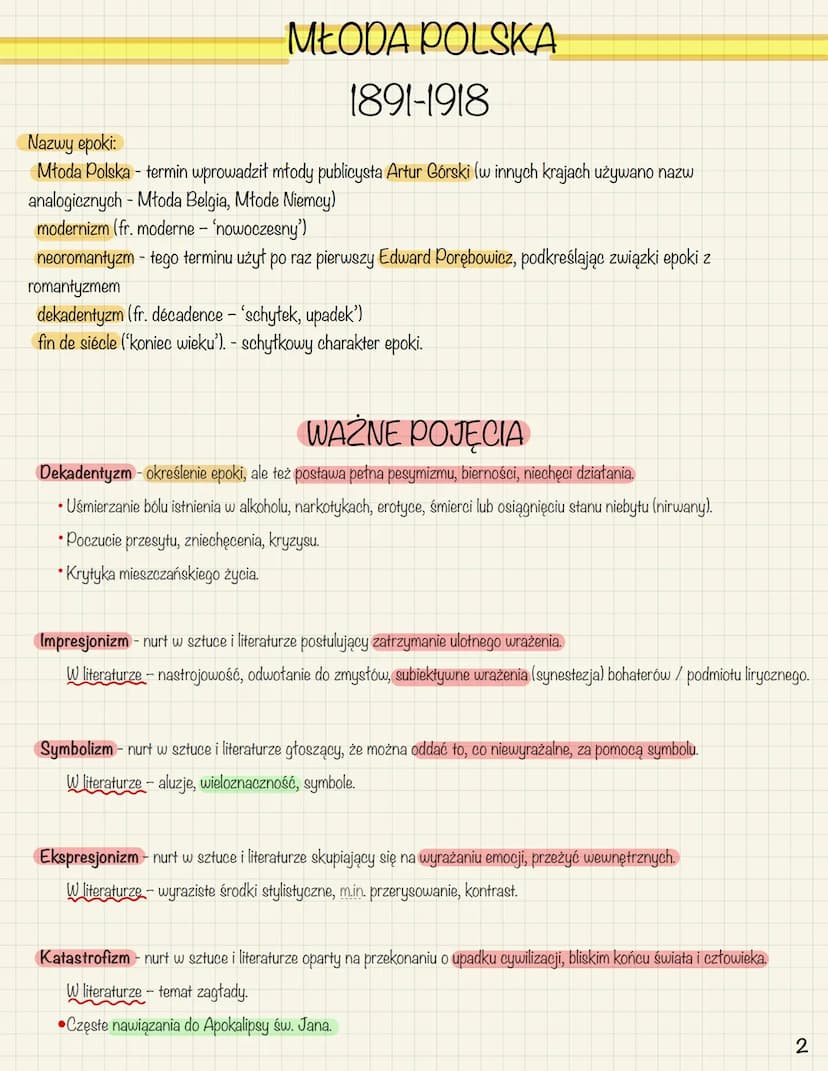 MŁODA POLSKA
1891-1918
Nazwy epoki:
Młoda Polska - termin wprowadził młody publicysta Artur Górski (w innych krajach używano nazw
analogicznych - Młoda Belgia, Młode Niemcy)
modernizm (fr. moderne – ‘nowoczesny’)
neoromantyzm - tego terminu użył po raz pierwszy Edward Porębowicz, podkreślając związki epoki z
romantyzmem
dekadentyzm (fr. décadence – ‘schyłek, upadek’)
fin de siécle (‘koniec wieku’). - schyłkowy charakter epoki.
WAŻNE POJĘCIA
Dekadentyzm - określenie epoki, ale też postawa pełna pesymizmu, bierności, niechęci działania.
• Uśmierzanie bólu istnienia w alkoholu, narkotykach, erotyce, śmierci lub osiągnięciu stanu niebytu (nirwany).
• Poczucie przesytu, zniechęcenia, kryzysu.
• Krytyka mieszczańskiego życia.
Impresjonizm - nurt w sztuce i literaturze postulujący zatrzymanie ulotnego wrażenia.
W literaturze – nastrojowość, odwołanie do zmysłów, subiektywne wrażenia (synestezja) bohaterów / podmiotu lirycznego.
Symbolizm - nurt w sztuce i literaturze głoszący, że można oddać to, co niewyrażalne, za pomocą symbolu.
W literaturze – aluzje, wieloznaczność, symbole.
Ekspresjonizm - nurt w sztuce i literaturze skupiający się na wyrażaniu emocji, przeżyć wewnętrznych.
W literaturze – wyraziste środki stylistyczne, m.in. przerysowanie, kontrast.
Katastrofizm - nurt w sztuce i literaturze oparty na przekonaniu o upadku cywilizacji, bliskim końcu świata i człowieka.
W literaturze – temat zagłady.
• Częste nawiązania do Apokalipsy św. Jana.
2